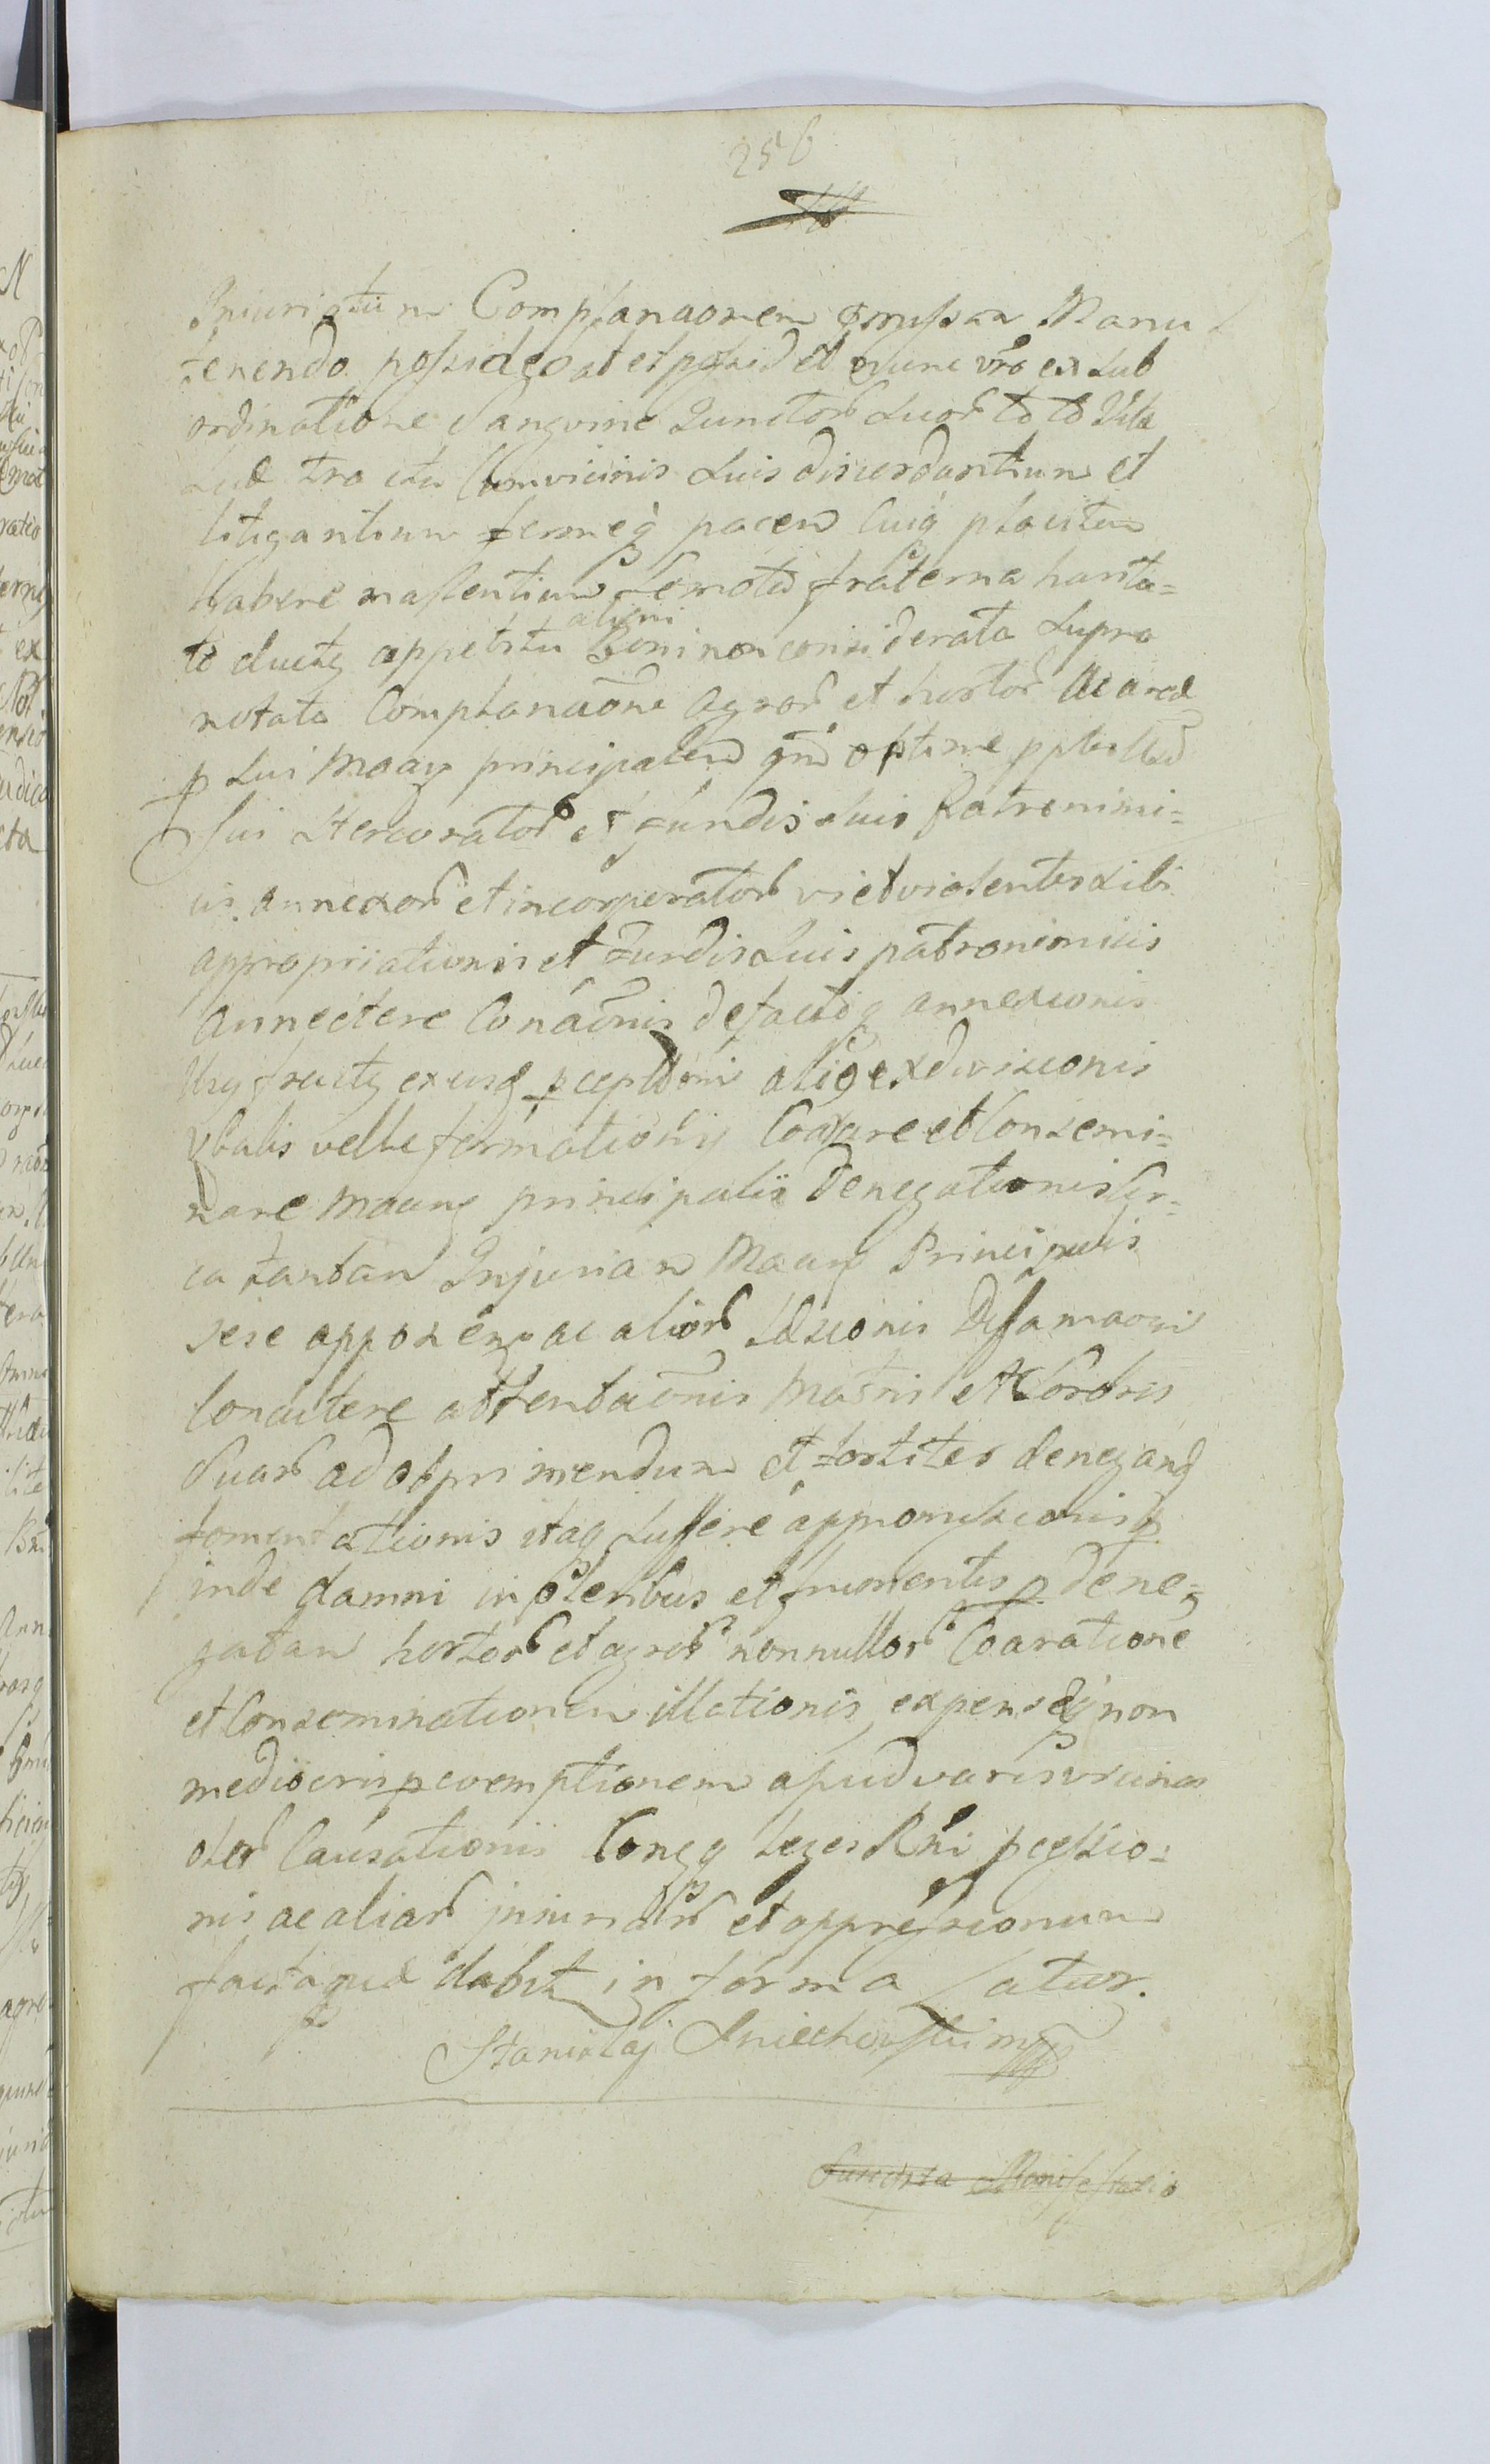 256
Iniuristium Complanaonem Manu
tenendo possidebat et possid et nunc vro ex sub
ordinatione Sanguine Junctor suor toto Vita
suae tractu Cum vicinis suis discordantium et
litigantium pacem Cuiq placitam
habere Semota fraterna harita=
te ductq appetitu alieni Boni non considerata supra
notata Complanaone Agror et hortor ac area
p sui Maay principalem qm optime
sui stercorator et fundis suis Patronimi=
cis annexor et incorporator vi et violenter sibi
appropriationis et fundis suis patronimicis
Annectere Conaonis de factoq annexionis
Usq fructq exusq pceptioni aliq ex divisionis
vbalis velle formationiq Coarare et Consemi=
nare Maanq principalis denegationis Cir=
ca tantam Injuriam Maanq Principalis
sese apponenq ac alior Laesionis Defamaonis
Concitere attentaonis Matris et Soror
Suar ad opprimendum et fortiter denegand
fomentationis itaq suffere appromissionisq
inde damni in oleribus et frumentis p dene=
gatam hortor et agror nonnullor Coaratione
et Conseminationem illationis expensaq non
mediocris p coemptionem apud varios vicinos
oler Causationis Congq leges Rni pgessio=
nis ac aliar iniuriar et oppressionum
facta quae dabit in forma Latior.
Stanislaj Sniechowski mpp
Suscepta Manifestatio